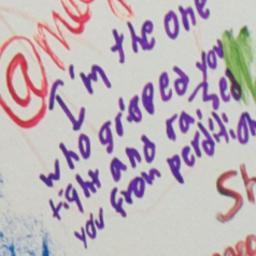 I'm the one
who gripped you
tight and raised
you from perdition